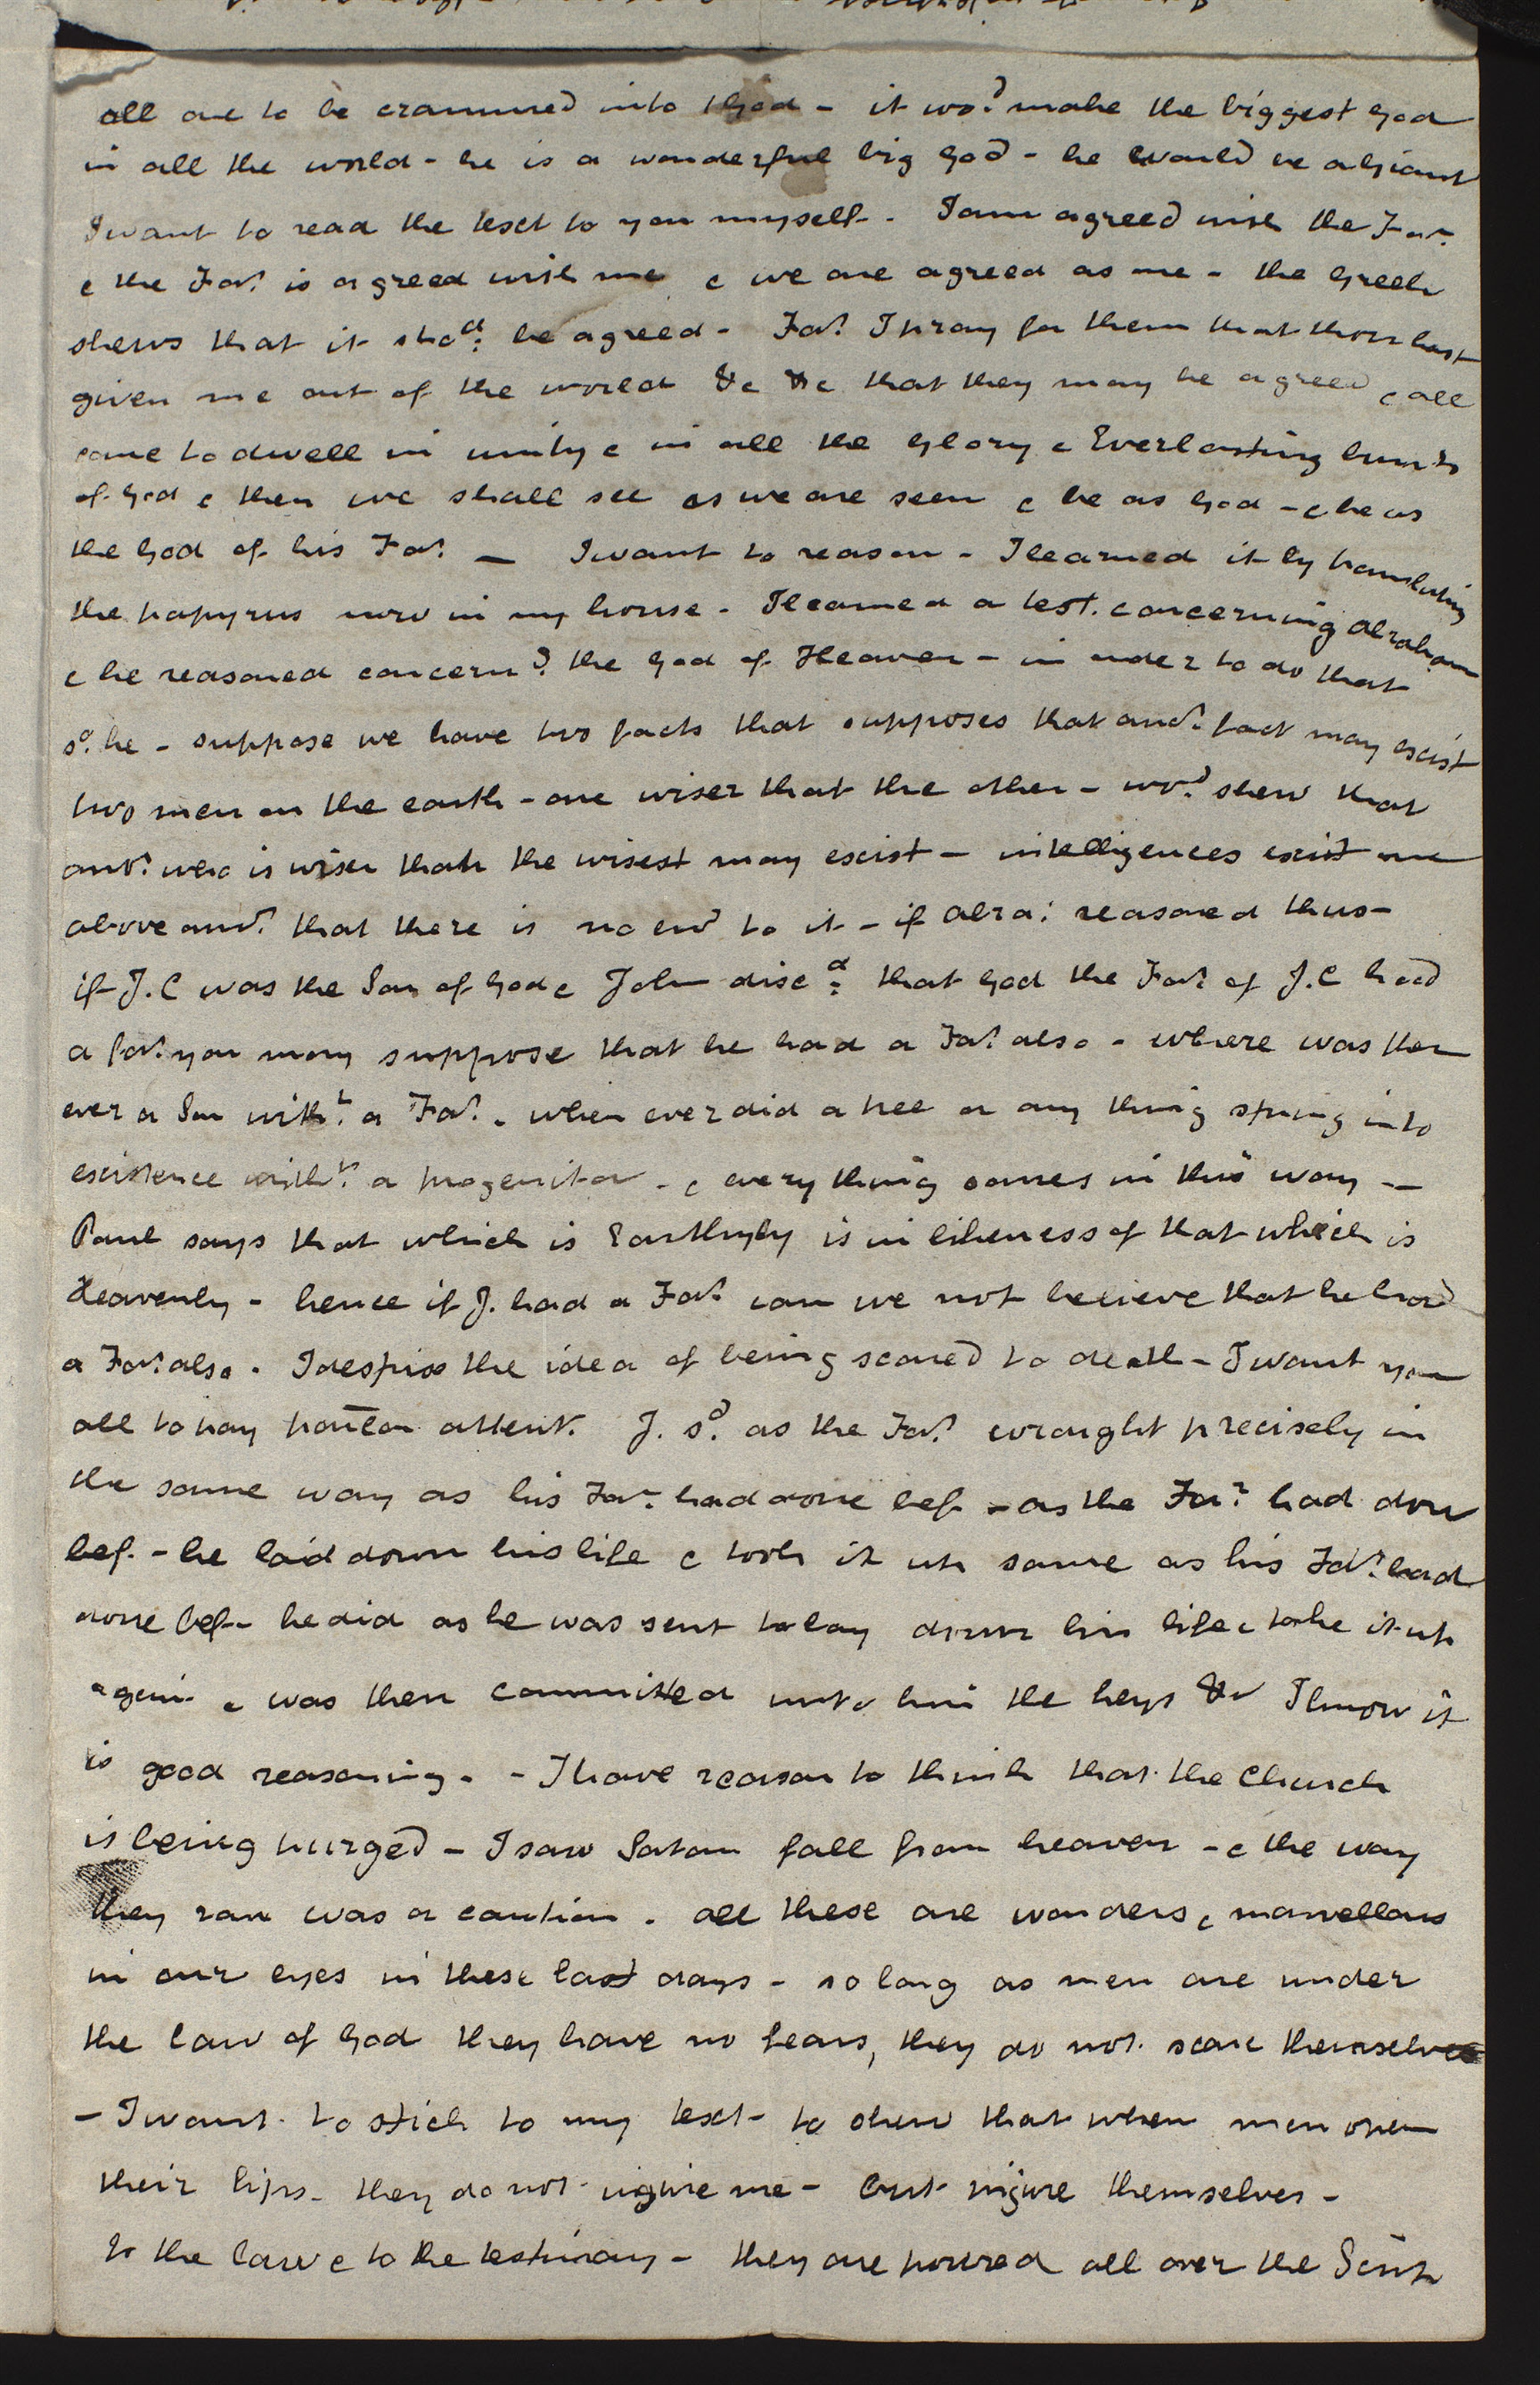 all are to be crammed into 1 God - it wod. make the biggest God
in all the world - he is a wonderful big God - he would be a Giant
I want to read the text to you myself - I am agreed with the Far.
& the Far. is agreed with me & we are agreed as one - the Greek
shews that it shod. be agreed - Far. I pray for them that thou hast
given me out of the world &c &c that they may be agreed & all
come to dwell in unity & in all the Glory & Everlasting burngs
of God & then we shall see as we are seen & be as God - & he as
the God of his Far. — I want to reason - I learned it by translating
the papyrus now in my house - I learned a test. concerning Abraham
& he reasoned concerng. the God of Heaven - in order to do that
sd. he - suppose we have two facts that supposes that anor. fact may exist
two men on the earth - one wiser that the other - wod. shew that
anor. who is wiser than the wisest may exist - intelligences exist one
above anor. that there is no end to it - if Abra: reasoned thus -
if J. C was the Son of God & John discd. that God the Far. of J. C had
a far. you may suppose that he had a Far. also - where was ther
ever a Son witht. a Far. - when ever did a tree or any thing spring into
existence witht. a progenitor - & every thing comes in this way —
Paul says that which is Earthyly is in likeness of that which is
Heavenly - hence if J. had a Far. can we not believe that he had
a Far. also - I despise the idea of being scared to death - I want you
all to pay partlar attent. J. sd. as the Far. wrought precisely in
the same way as his Far. had done bef - as the Far. had done
bef. - he laid down his life & took it up same as his Far. had
done bef - he did as he was sent to lay down his life & take it up
again & was then committed unto him the keys &c I know it
is good reasoning - - I have reason to think that the Church
is being purged - I saw Satan fall from heaven - & the way
they ran was a caution - all these are wonders & marvellous
in our eyes in these last days - so long as men are under
the law of God they have no fears, they do not scare themselves
- I want to stick to my text - to shew that when men open
their lips - they do not injure me - but injure themselves -
to the law & to the testimony - they are poured all over the Scrip